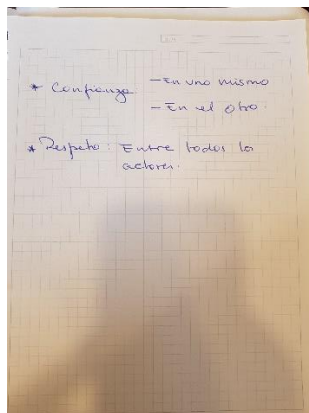 * Confianza - En uno mismo
- En el otro.
* Respeto: Entre todos los
actores.